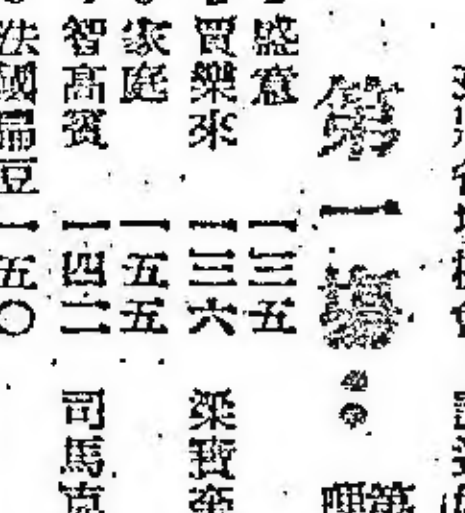 第一場
第
哩
盛意 一三五
賈樂來 一三六 梁寶奎
家庭 一五五
智高賓 一四二 司馬克
法國扁豆 一五〇